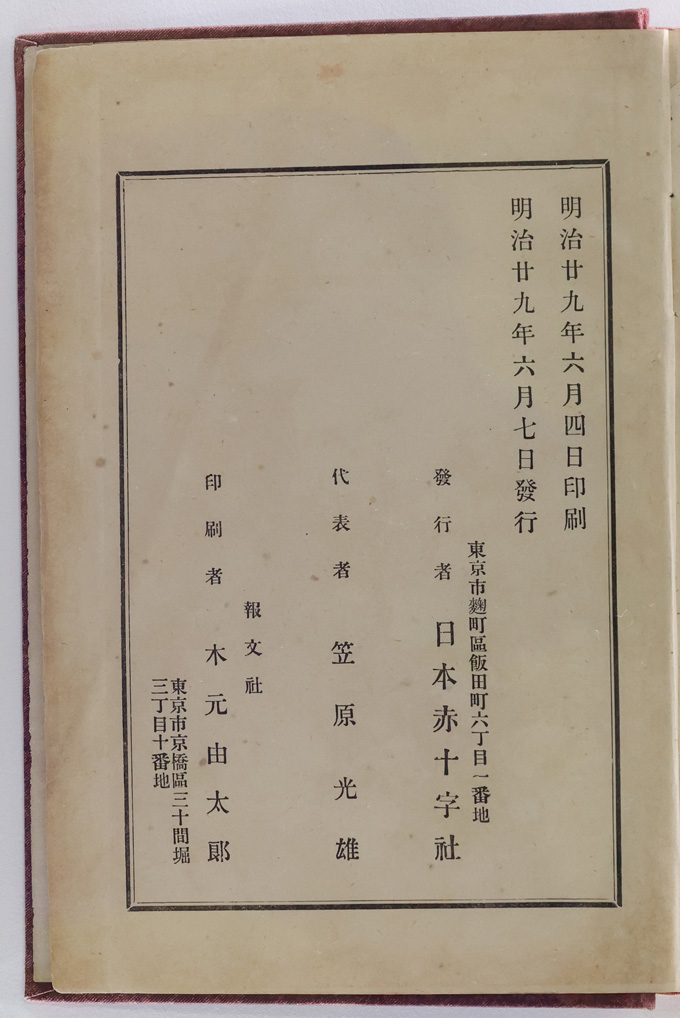 明治廿九年六月四日印刷
明治廿九年六月七日發行
東京市麴町區飯田町六丁目一番地
發行者 日本赤十字社
代表者 笠原光雄
報文社
印刷者 木元由太郞
東京市京橋區三十間堀
三丁目十番地